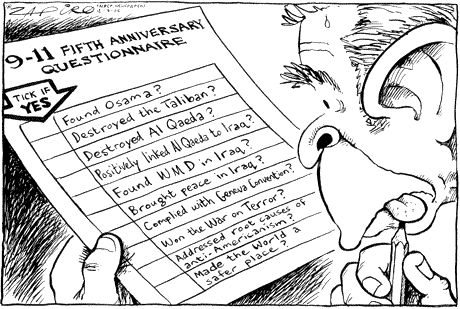 ZAPIRO
9-11 FIFTH ANNIVERSARY
QUESTIONNAIRE
TICK IF
YES
Found Osama?
Destroyed the Taliban?
Destroyed Al Qaeda?
Positively linked Al Qaeda to Iraq?
Found WMD in Iraq?
Brought peace in Iraq?
Complied with Geneva Convention?
Won the War on Terror?
Addressed root causes of
anti-Americanism?
Made the World a
safer place?